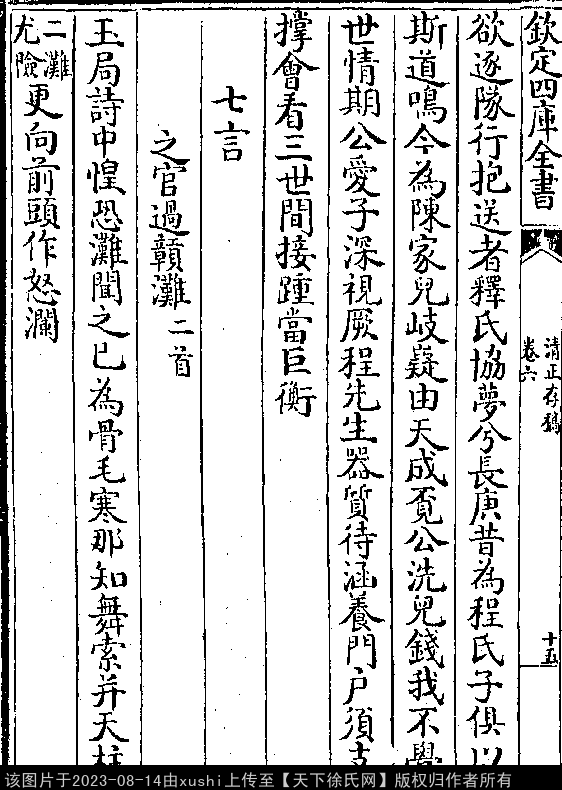 欽定四庫全書
清正存稿
卷六
十五
欲逐隊行抱送者釋氏協夢兮長庚昔為程氏子俱以
斯道鳴今為陳家兒岐嶷由天成覓公洗兒錢我不學
世情期公愛子深視厥程先生器質待涵養門户須支
撑會看三世間接踵當巨衡
七言
之官過贛灘二首
玉局詩中惶恐灘聞之已為骨毛寒那知舞索并天柱
二灘
尤險
更向前頭作怒瀾
该图片于2023-08-14由xushi上传至【天下徐氏网】版权归作者所有